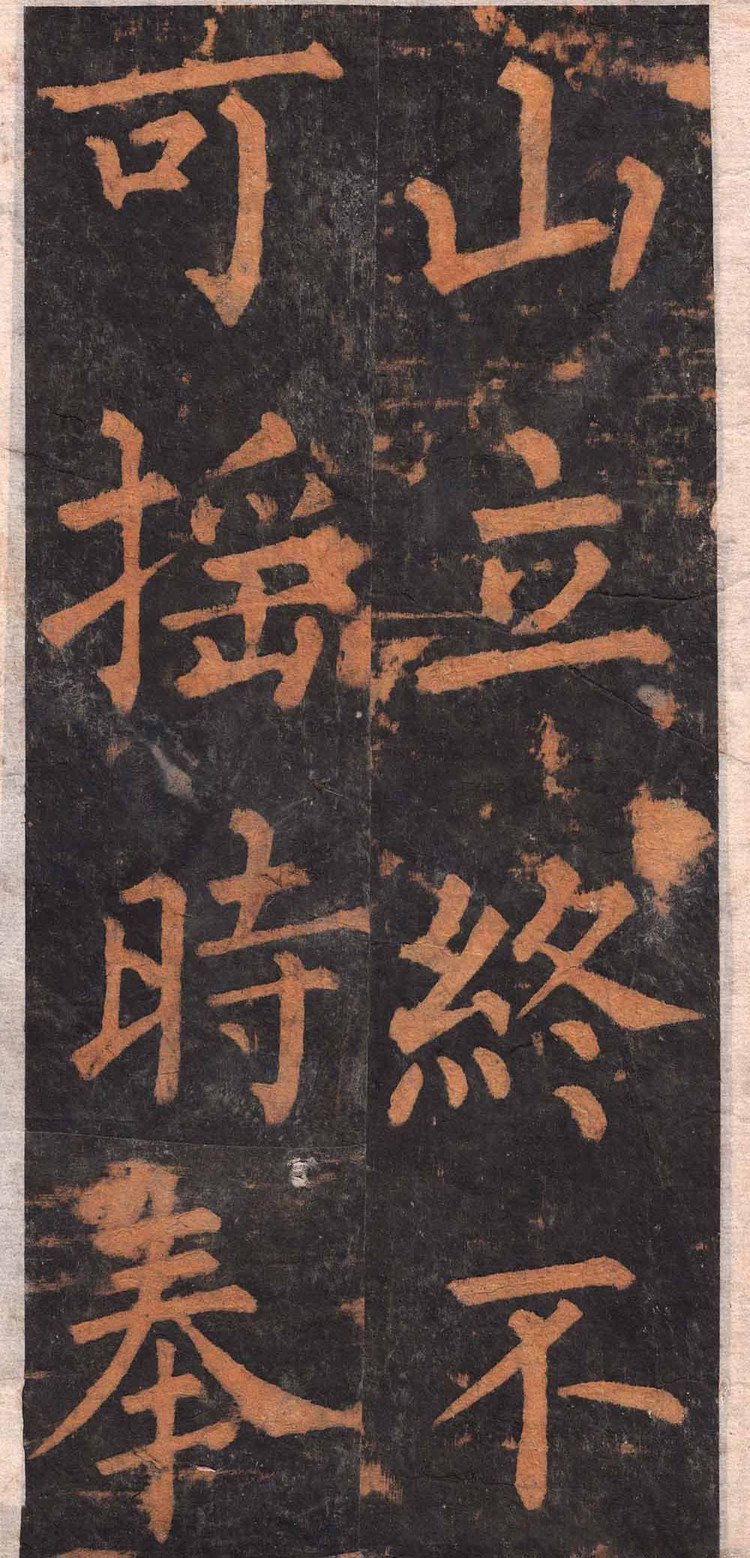 山立終不
可搖時奉